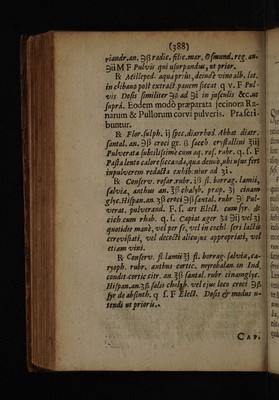 (388)
riandr. an. ℈ß radic. filic. mar. Osmund. reg. an.
℈ii M F Pulvis qui usurpandus, ut prior.
℞ Milleped. aqua prius, deinde vino alb. lot.
in clibano post extract. panem siccat q v. F Pul-
vis Dosis similiter ʒß ad ℈i in jusculis &c. ut
suprá. Eodem modò præparata jecinora Ra-
narum & Pullorum corvi pulveris. Præscri-
buntur.
℞ Flor. sulph. ij spec. diarrhod. Abbat diatr.
santal. an. ℈ß croci gr. ß sacch crystallini ʒiij
Pulverata subtilissimè cum aq. ros. rubr. q. s. F
Pasta lento calore siccanda, qua denuò, ubi usus fert
inpulverem redacta exhibeatur ad ʒi.
℞ Conserv. rosar. rubr. ℥ß fl. borrag. lamii,
salviæ, anthus an. ʒß chalyb. præp. ʒj cinam
glyc. Hispan. an. ʒß crtei ℈ß santal. rubr ℈ Pul-
verat. pulverand. F. s. art Elect. cum syr. de
cich cum rhab. q. s. Capiat æger ʒi ℈ij vel ʒj
quotidie manè, vel per se, vel in cochl seri lactis
cerevisiati, vel decocti alicujus appropriati, vel
etiam vini.
℞ Conserv. fl. lamii ℥j fl. borrag. salviæ, ca-
ryoph. rubr. anthus cortic. myrobalan in Ind,
condit. cortic citr. an ℥ß santal. rubr. cinam glyc.
Hispan. an. ʒß salis chalyb. vel ejus loco croci ℈ß
syr de absinth. q s. F Elect. Dosis & modus u-
tendi ut prioris.
CAP.